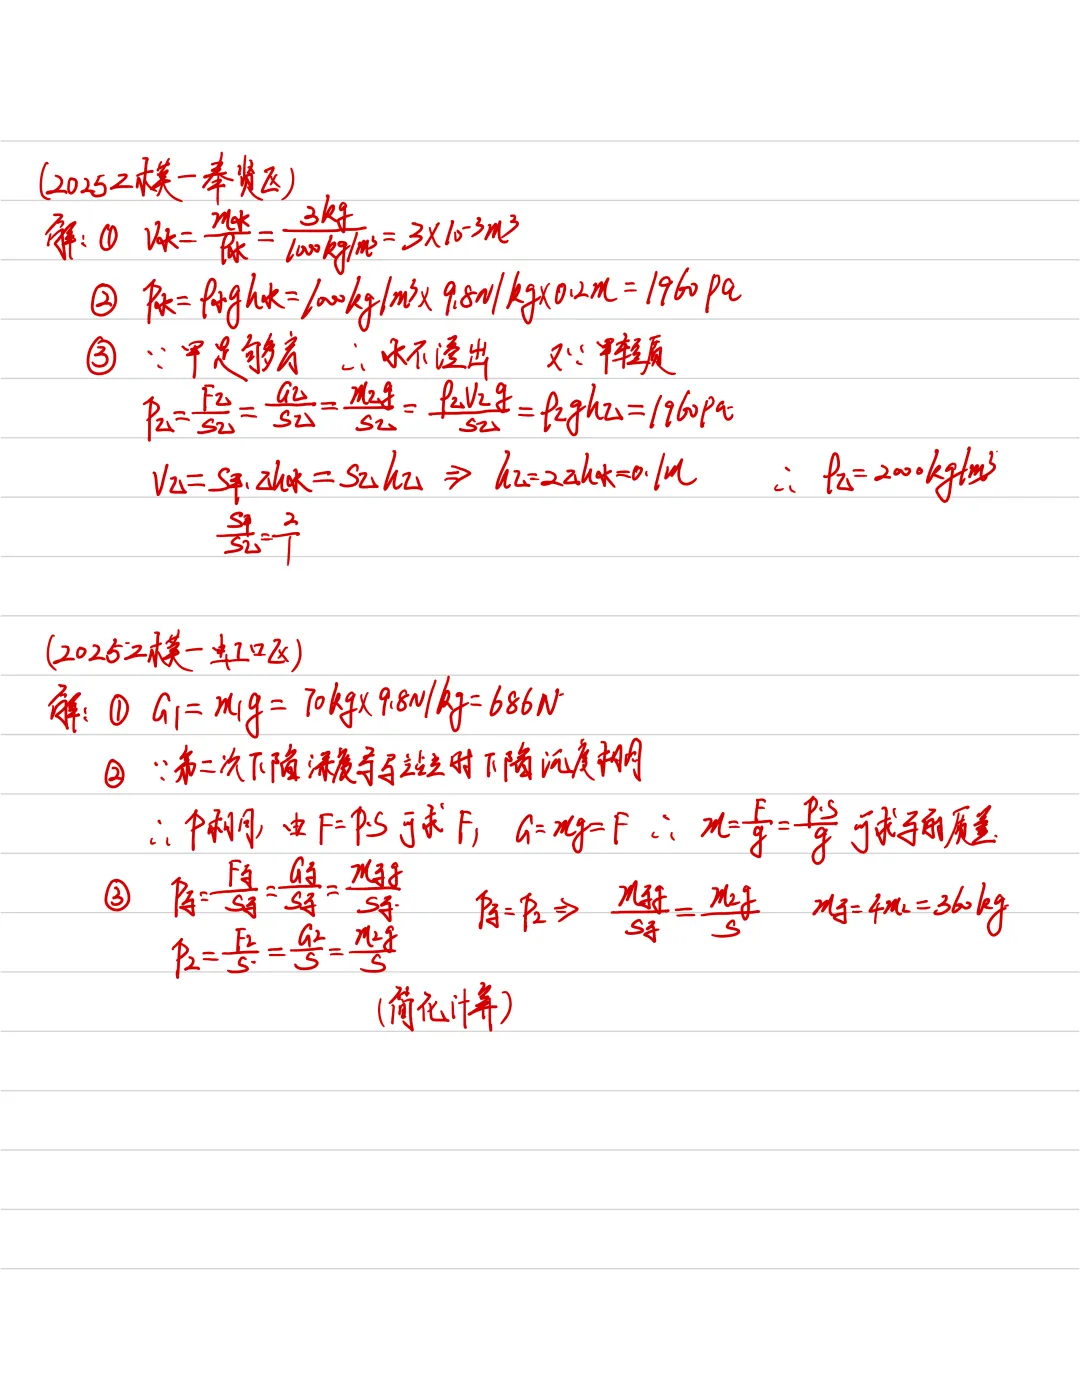 (2025二模一奉贤区)
解: ① V水=m水/ρ水=3kg/1000kg/m³=3×10⁻³m³
② P水=ρ水gh水=1000kg/m³×9.8N/kg×0.2m=1960Pa
③ ∵甲足够高 ∴水不溢出 又∵甲轻质
P乙=F乙/S乙=G乙/S乙=m乙g/S乙=ρ乙V乙g/S乙=ρ乙gh乙=1960Pa
V乙=S甲·Δh水=S乙h乙 ⇒ h乙=2Δh水=0.1m ∴ρ乙=2000kg/m³
S甲/S乙=2/1
(2025二模一虹口区)
解: ① G₁=m₁g=70kg×9.8N/kg=686N
② ∵第二次下陷深度等与站立时下陷沉度相同
∴P相同, 由F=P·S可求F, G=mg=F ∴m=F/g=P·S/g 可求的质量.
③ P=F/S=G/S=mg/S P=P₂⇒mg/S=m₂g/S m=4m₂=360kg
P₂=F₂/S=G₂/S=m₂g/S
(简化计算)